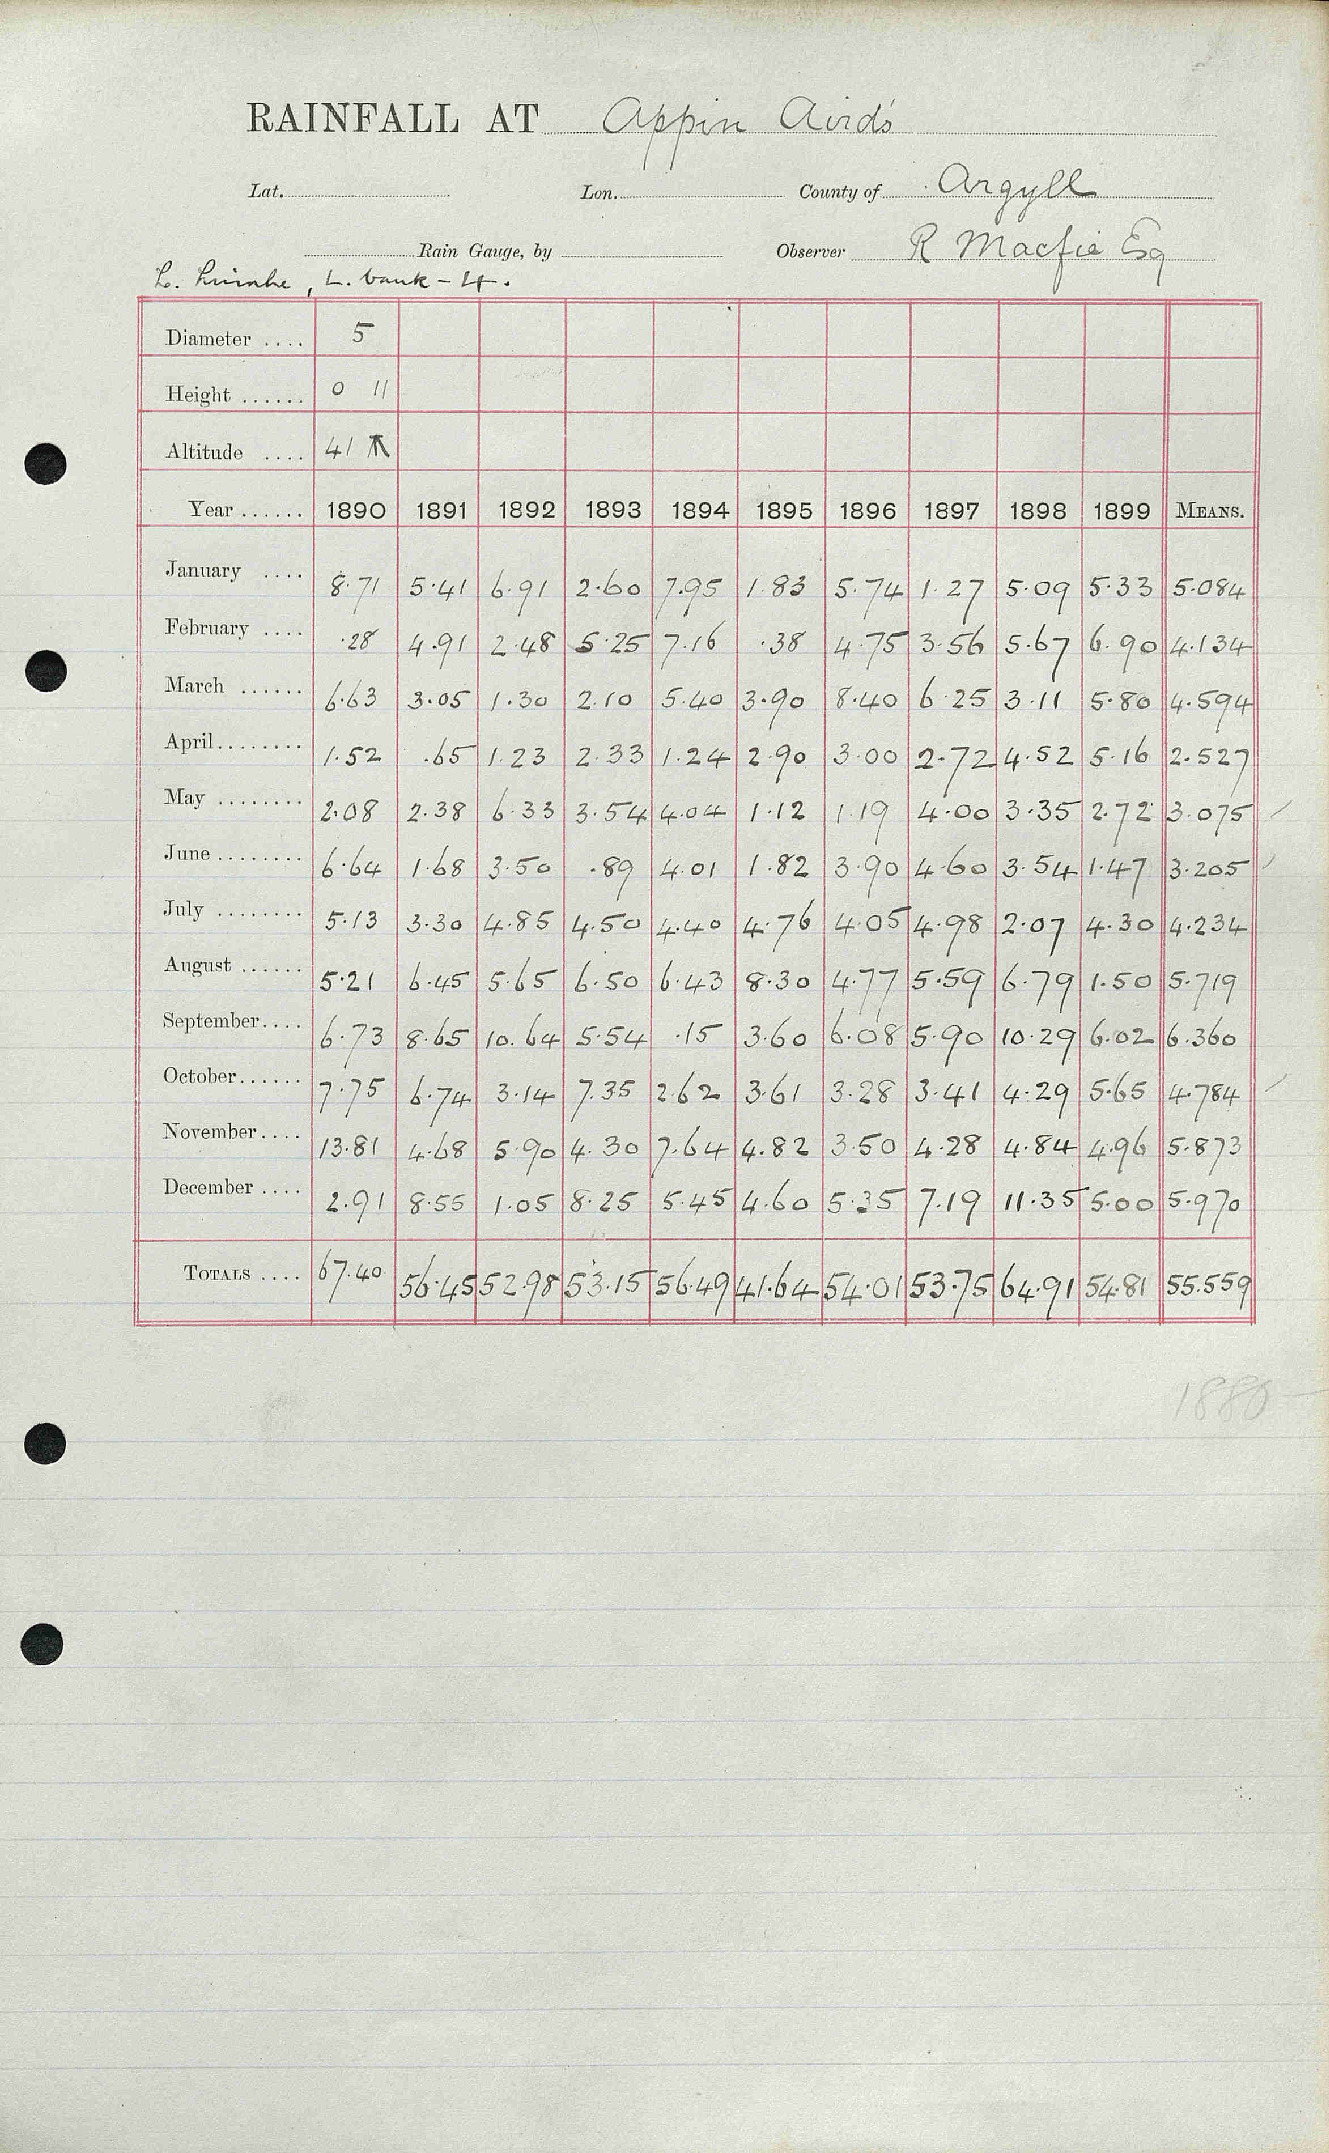 RAINFALL AT Appin Airds
Lat. Lon. County of Argyll
Rain Gauge, by Observer R Macfie Esq
L. Linnhe, L. bank - 4.
Diameter .... 5
Height ...... 0 11
Altitude .... 41
Year ...... 1890 1891 1892 1893 1894 1895 1896 1897 1898 1899 MEANS.
January .... 8.71 5.41 6.91 2.60 7.95 1.83 5.74 1.27 5.09 5.33 5.084
February .... .28 4.91 2.48 5.25 7.16 .38 4.75 3.56 5.67 6.90 4.134
March ...... 6.63 3.05 1.30 2.10 5.40 3.90 8.40 6.25 3.11 5.80 4.594
April........ 1.52 .65 1.23 2.33 1.24 2.90 3.00 2.72 4.52 5.16 2.527
May ........ 2.08 2.38 6.33 3.54 4.04 1.12 1.19 4.00 3.35 2.72 3.075
June ........ 6.64 1.68 3.50 .89 4.01 1.82 3.90 4.60 3.54 1.47 3.205
July ........ 5.13 3.30 4.85 4.50 4.40 4.76 4.05 4.98 2.07 4.30 4.234
August ...... 5.21 6.45 5.65 6.50 6.43 8.30 4.77 5.59 6.79 1.50 5.719
September.... 6.73 8.65 10.64 5.54 .15 3.60 6.08 5.90 10.29 6.02 6.360
October...... 7.75 6.74 3.14 7.35 2.62 3.61 3.28 3.41 4.29 5.65 4.784
November.... 13.81 4.68 5.90 4.30 7.64 4.82 3.50 4.28 4.84 4.96 5.873
December .... 2.91 8.55 1.05 8.25 5.45 4.60 5.35 7.19 11.35 5.00 5.970
TOTALS .... 67.40 56.45 52.98 53.15 56.49 41.64 54.01 53.75 64.91 54.81 55.559
1880-